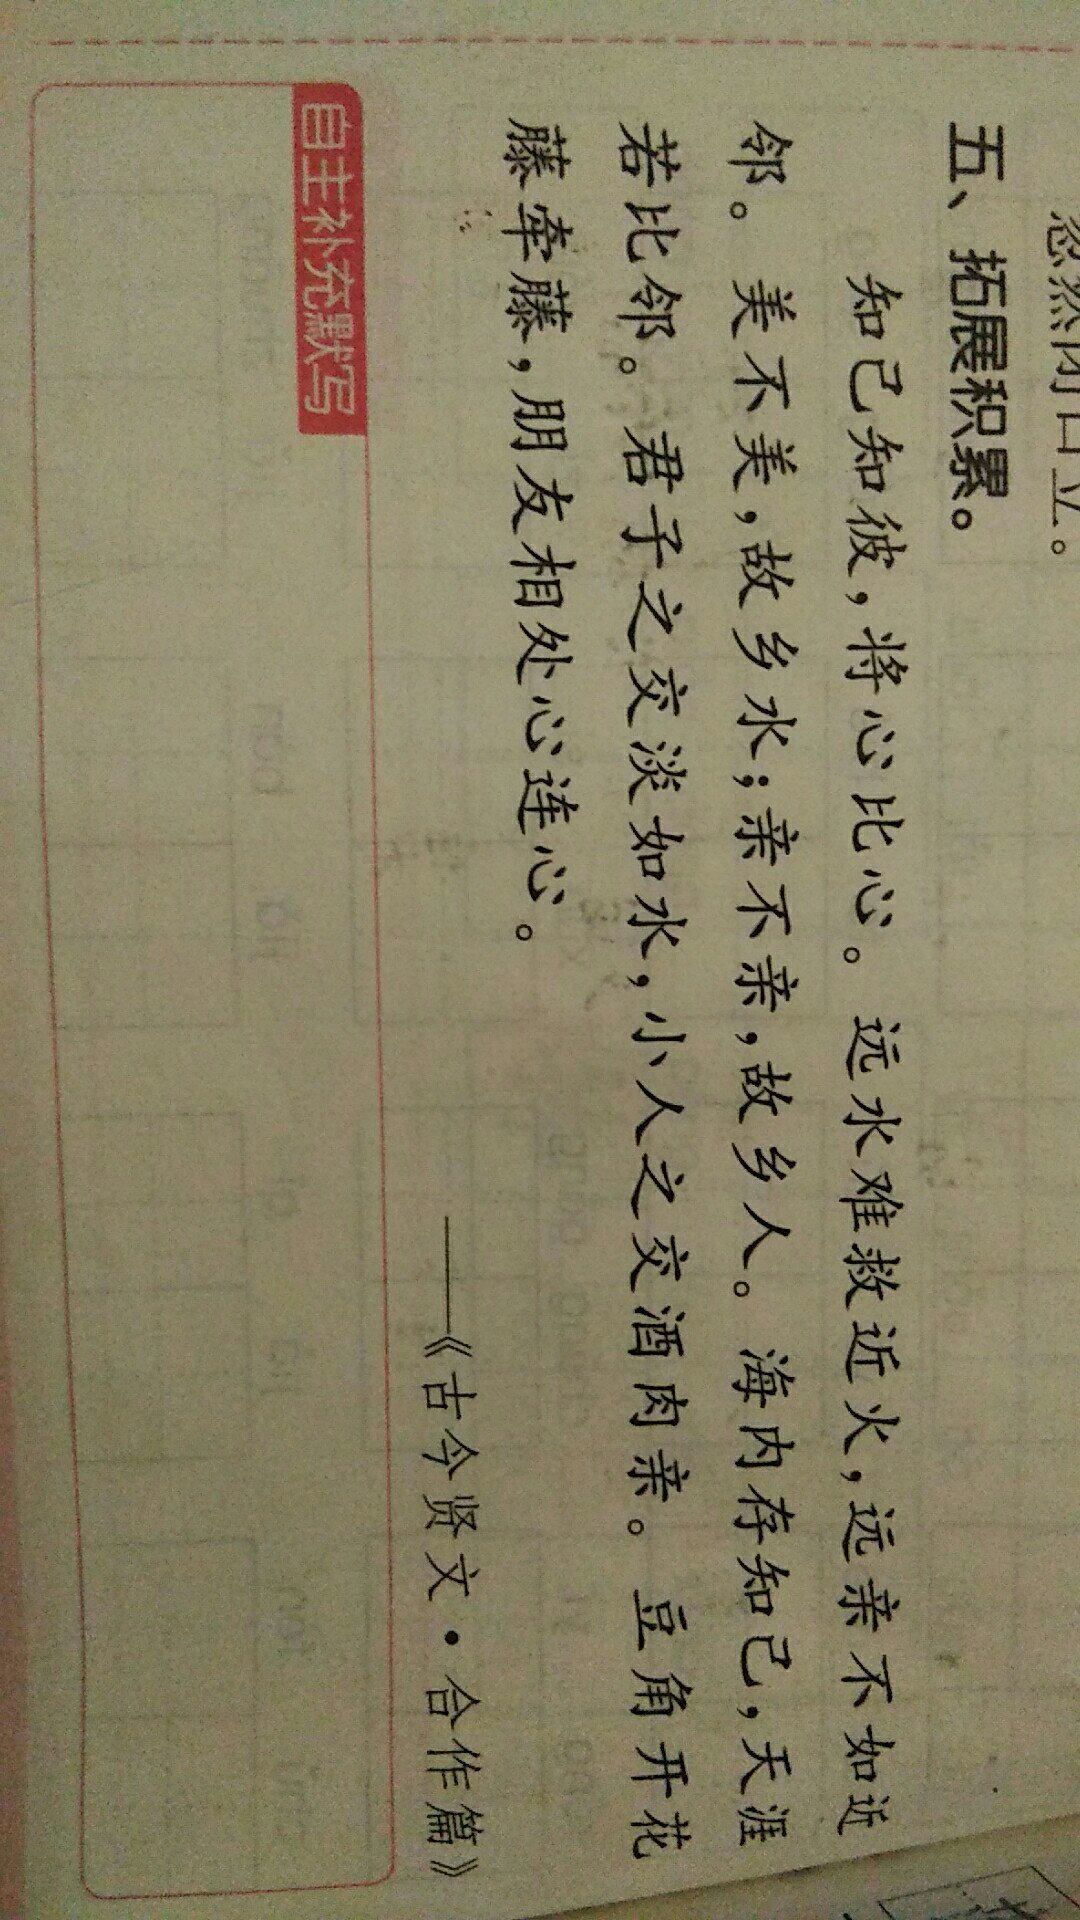 五、拓展积累。
知己知彼,将心比心。远水难救近火,远亲不如近
邻。美不美,故乡水;亲不亲,故乡人。海内存知己,天涯
若比邻。君子之交淡如水,小人之交酒肉亲。豆角开花
藤牵藤,朋友相处心连心。
——《古今贤文·合作篇》
自主补充默写